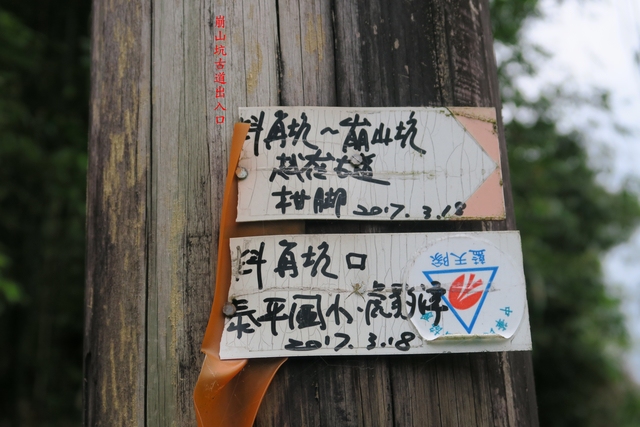 崩山坑古道出入口
料角坑~崩山坑
越嶺古道
柑腳 2017.3.18
料角坑口
泰平國小·虎豹潭
2017.3.18
藍天隊